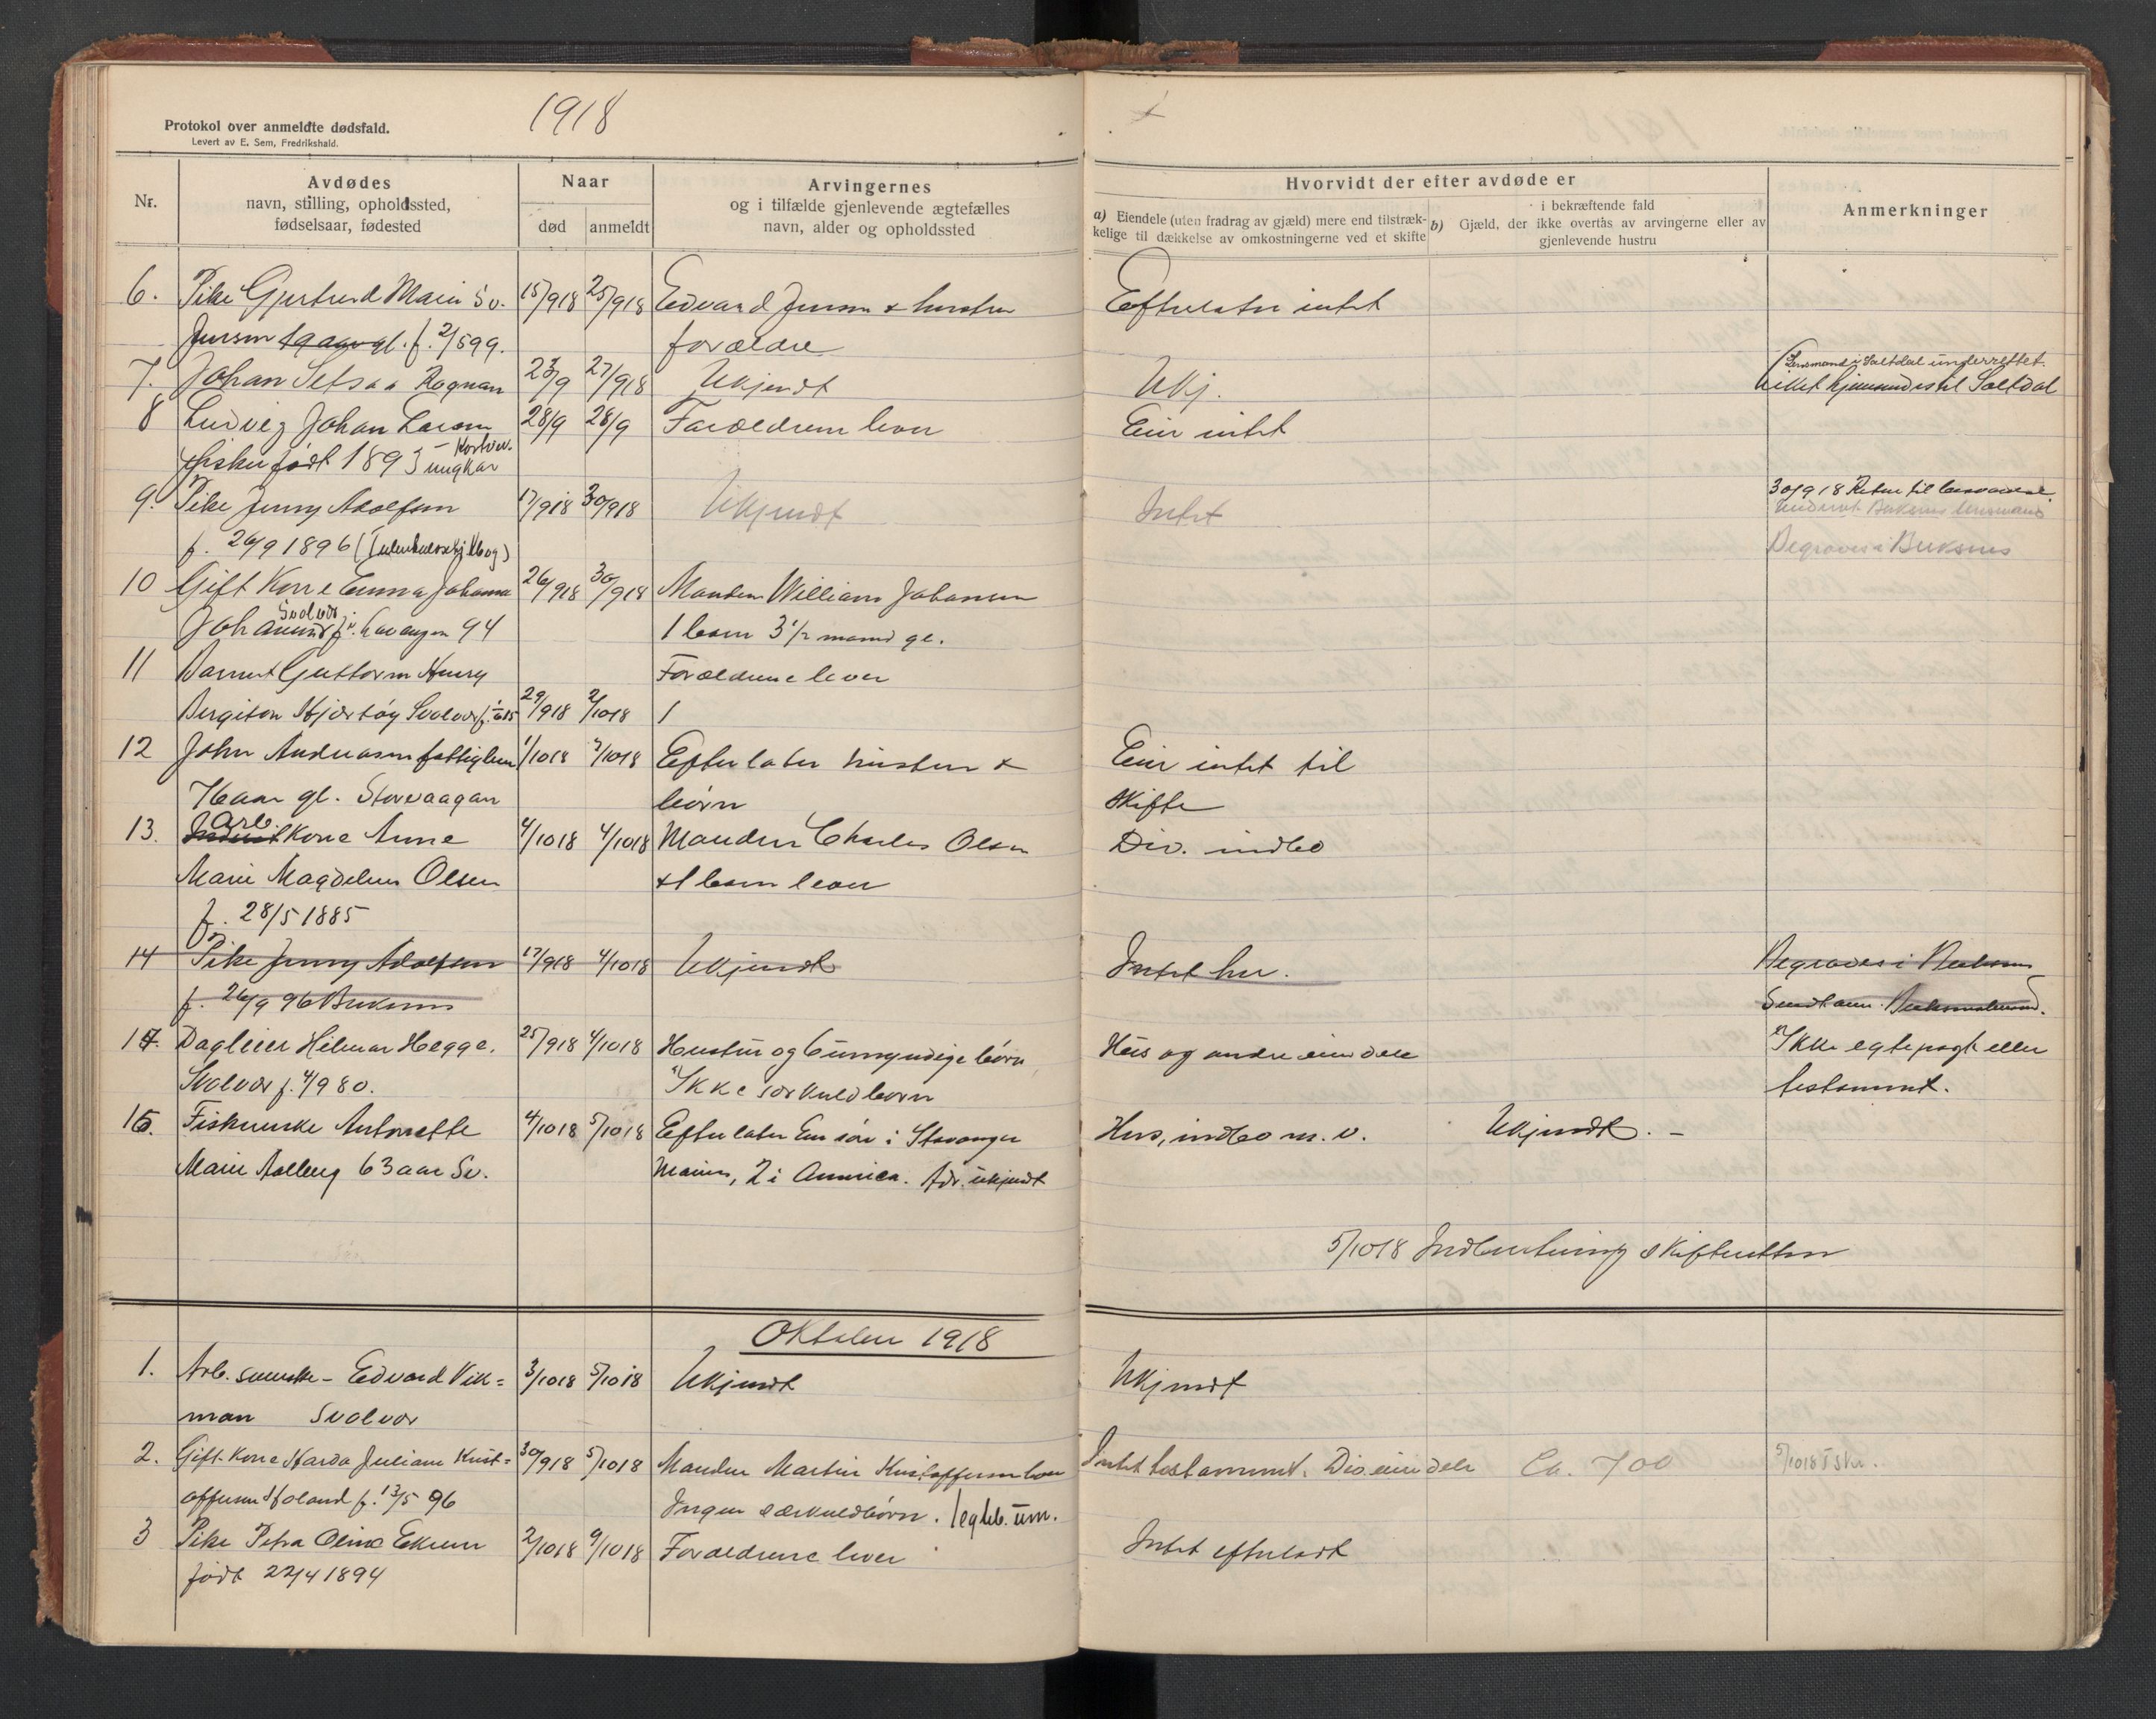 1918
Protokol over anmeldte dødsfald.
Levert av E. Sem, Fredrikshald.
Nr.
Avdødes
navn, stilling, opholdssted,
fødselsaar, fødested
Naar
død anmeldt
Arvingernes
og i tilfælde gjenlevende ægtefælles
navn, alder og opholdssted
Hvorvidt der efter avdøde er
a) Eiendele (uten fradrag av gjæld) mere end tilstræk-
kelige til dækkelse av omkostningerne ved et skifte
i bekræftende fald
b) Gjæld, der ikke overtas av arvingerne eller av
gjenlevende hustru
Anmerkninger
6. Pike Gjertrud Marie Sv. 15/918 25/918 Edvard Jensen & hustru Efterlater intet
Jensen 19 aar gl. f. 2/599. forældre
7. Johan Setsaa Rognan 23/9 27/918 Ukjendt Ukj. Lensmand i Saltdal underrettet.
Liket hjemsendes til Saltdal
8 Ludvig Johan Larsen 28/9 28/9 Forældrene lever Eier intet
Fisker født 1893 ungkar
9. Pike Jenny Adolfsen 17/918 30/918 Ukjendt Intet 30/918 Retur til
f. 26/9 1896 Buksnes lensmand
Begraves i Buksnes
10 Gift Kone Emma Johanna 26/918 30/918 Manden William Johansen
Johansen Svolvær f. 94 1 barn 3 1/2 maaned gl.
11 Barnet Guttorm Henry Forældrene lever
Bergiton Svolvær 29/918 2/1018
12 John Andreasen fattiglem 1/1018 2/1018 Efterlater hustru & Eier intet til
76 aar gl. Storvaagan børn skifte
13. Arb. Kone Anne 4/1018 4/1018 Manden Charles Olsen Div. indbo
Marie Magdelene Olsen & 1 barn lever
f. 28/5 1885
14 Pike Jenny Adolfsen 17/918 4/1018 Ukjendt Intet her. Begraves i Buksnes
f. 26/9 96 Buksnes Buksneslensmand.
14. Dagleier Hilmar Hegge. 25/918 4/1018 Hustru og 6 umyndige børn Hus og andre eiendele Ikke egtepagt eller
Svolvær f. 4/980. Ikke særkuldbørn testament.
15. Fiskerenke Antonette 4/1018 5/1018 Efterlater En søn i Stavanger Hus, indbo m.v. Ukjendt. –
Marie Aalberg 63 aar Sv. Marius, 2 i Amerika. Adr. ukjendt
5/1018 Indberetning skifteretten
Oktober 1918
1. Arb. svenske – Edvard Vik= 3/1018 5/1018 Ukjendt Ukjendt
man Svolvær
2. Gift Kone Harda Juliane Krist= 30/918 5/1018 Manden Martin Kristoffersen lever Intet testament. Div. eiendele Ca. 700 5/1018 T Skr.
offersen f. 13/5 96 Ingen særkuldbørn. 1 egteb. um.
3 Pike Petra Oline Ekren 2/1018 9/1018 Forældrene lever Intet efterladt
født 22/4 1894